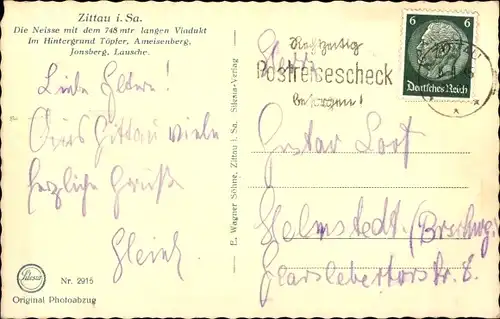 Zittau i. Sa.
Die Neisse mit dem 748 mtr langen Viadukt
Im Hintergrund Töpfer, Ameisenberg,
Jonsberg, Lausche.
Liebe Eltern!
Aus Zittau viele
herzliche Grüße
Nr. 2915
Original Photoabzug
E. Wagner Söhne, Zittau i. Sa. Silesia-Verlag
Rechtzeitig
Postreisescheck
besorgen!
6 6
Deutsches Reich
Gustav
Helmstedt (Brschwg.)